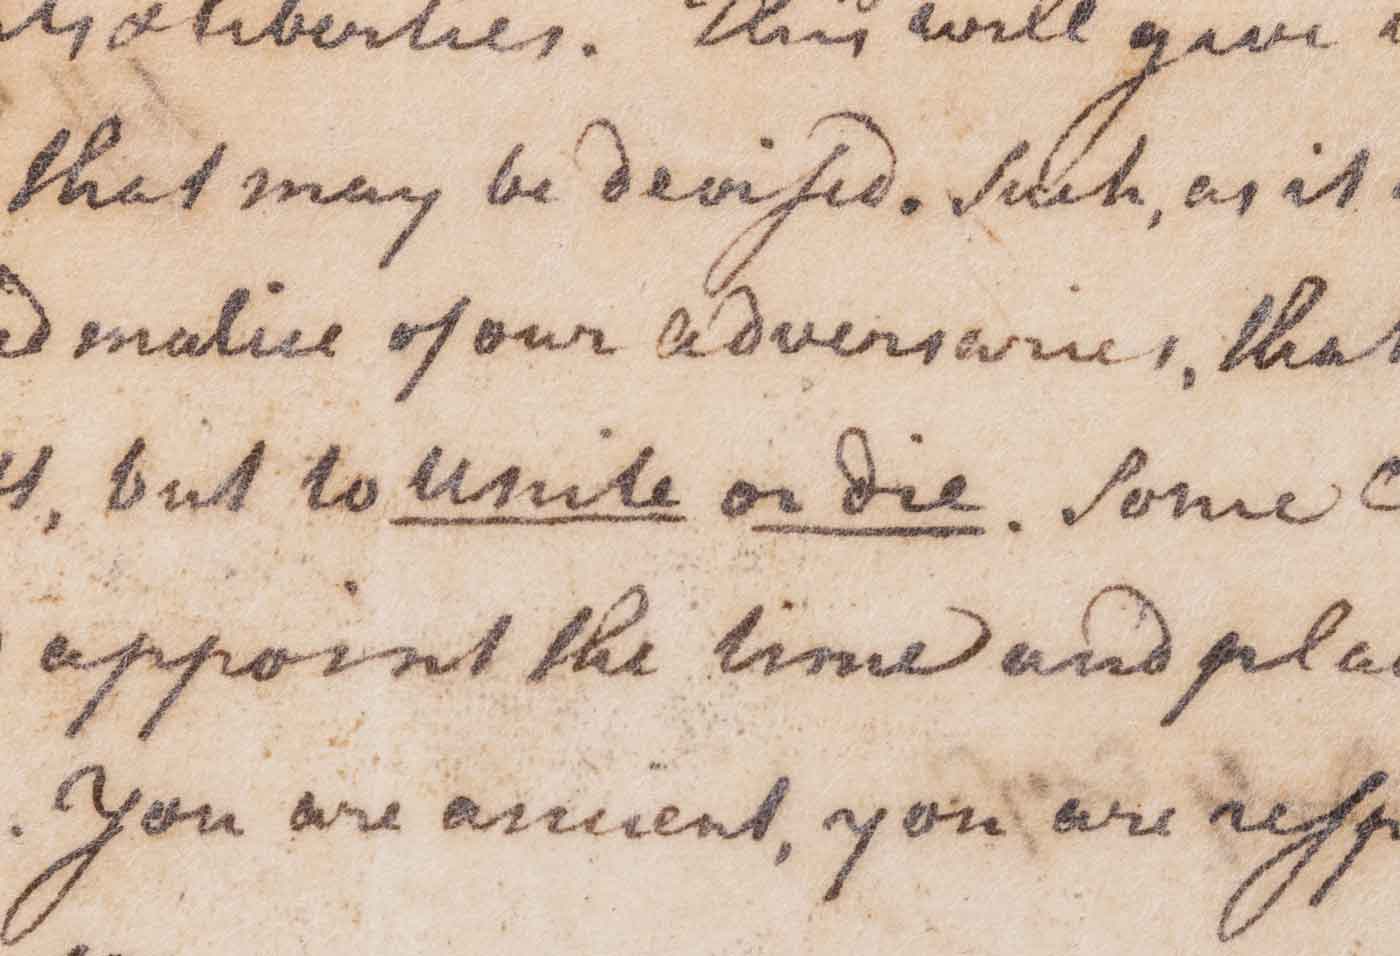 & liberties. This will give
that may be devised. Such, as it
malice of our adversaries, that
, but to unite or die. Some
appoint the time and pla
. You are ancient, you are resp